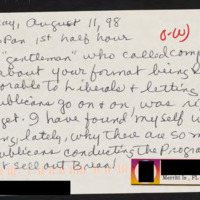 ay, August 11, 98
Pan, 1st half hour
O-(W)
"gentleman" who called comp
about your format being
orable to Liberals & letting
publicans go on & on, was ri
get. I have found myself
ng, lately, why there are so m
publicans conducting the Progra
sell out Brian!
Merritt Is, FL